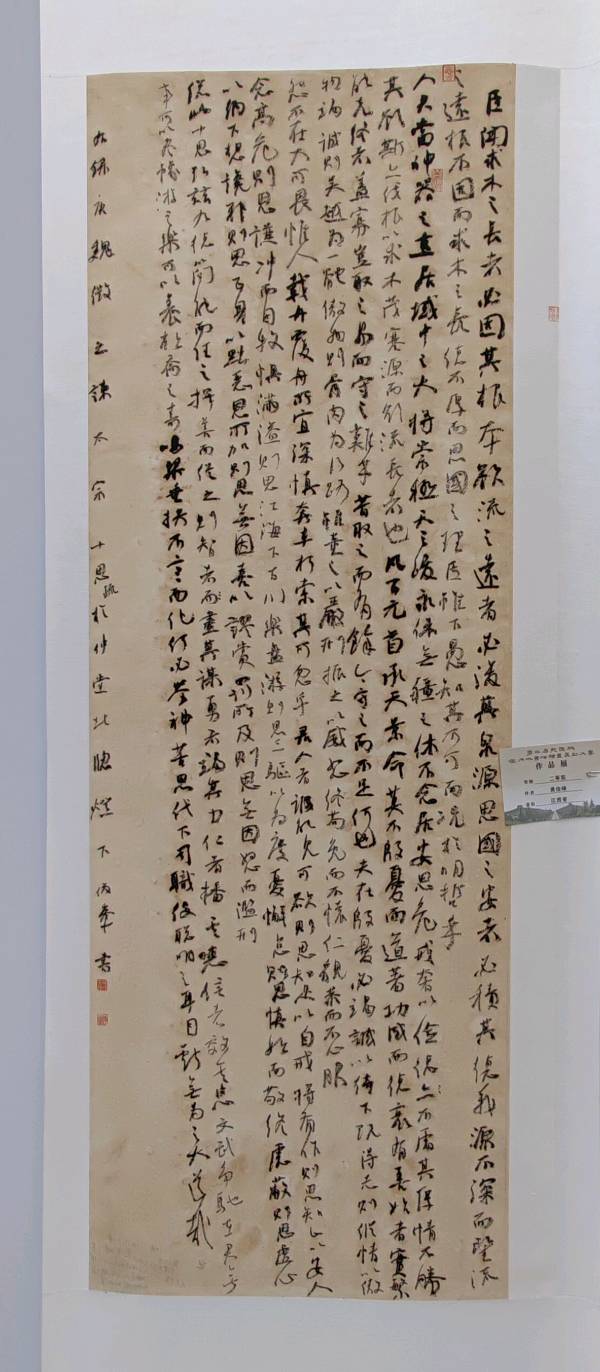 臣聞求木之長者必固其根本欲流之遠者必浚其泉源思國之安者必積其德義源不深而望流
之遠根不固而求木之長德不厚而思國之理臣雖下愚知其不可而況於明哲乎
人君當神器之重居域中之大將崇極天之峻永保無疆之休不念居安思危戒奢以儉德不處其厚情不勝
其欲斯亦伐根以求木茂塞源而欲流長者也凡百元首承天景命莫不殷憂而道著功成而德衰有善始者實繁
能克終者蓋寡豈取之易而守之難乎昔取之而有餘今守之而不足何也夫在殷憂必竭誠以待下既得志則縱情以傲
物竭誠則吳越為一體傲物則骨肉為行路雖董之以嚴刑振之以威怒終苟免而不懷仁貌恭而不心服
怨不在大可畏惟人載舟覆舟所宜深慎奔車朽索其可忽乎君人者誠能見可欲則思知足以自戒將有作則思知止以安人
念高危則思謙沖而自牧懼滿溢則思江海下百川樂盤游則思三驅以為度憂懈怠則思慎始而敬終慮壅蔽則思虛心
以納下想讒邪則思正身以黜惡恩所加則思無因喜以謬賞罰所及則思無因怒而濫刑
總此十思弘茲九德簡能而任之擇善而從之則智者盡其謀勇者竭其力仁者播其惠信者效其忠文武爭馳在君無
事可以盡豫游之樂可以養松喬之壽鳴琴垂拱不言而化何必勞神苦思代下司職役聰明之耳目虧無為之大道哉
右錄唐魏徵之諫太宗十思疏於仲堂北牕燈下
作品展
二等奖
江西省